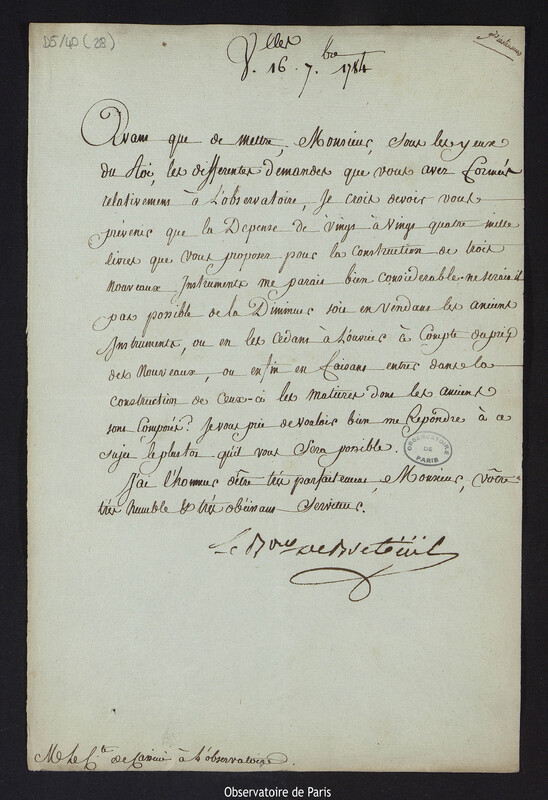 D5/40 (28)
V.lles 16. 7.bre 1784
Avant que de mettre, Monsieur, sous les yeux
du Roi, les differentes demandes que vous avez formées
relativement à L'observatoire, Je crois devoir vous
prévenir que la Depense de vingt à vingt quatre mille
livres que vous proposez pour la construction de trois
nouveaux Instruments me parait bien considerable. ne serait-il
pas possible de la Diminuer soit en vendant les anciens
Instruments, ou en les cedant à L'ouvrier à Compte du prix
des Nouveaux, ou enfin en faisant entrer dans la
construction de ceux-ci les matieres dont les anciens
sont Composés? Je vous prie de vouloir bien me Repondre à ce
sujet le plustot qu'il vous sera possible.
J'ai l'honneur d'être très parfaitement, Monsieur, vôtre
très humble et très obéissant Serviteur.
Le B.on de Breteüil
OBSERVATOIRE DE PARIS
M. Le C.te de Cassini à L'observatoire.
Observatoire de Paris